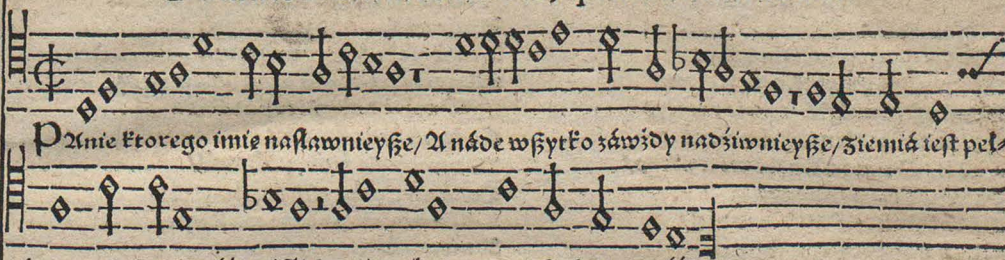 PAnie ktorego imię nasławnieyſze/ A náde wſzytko záwżdy nadźiwnieyſze/ Ziemiá ieſt pel⸗